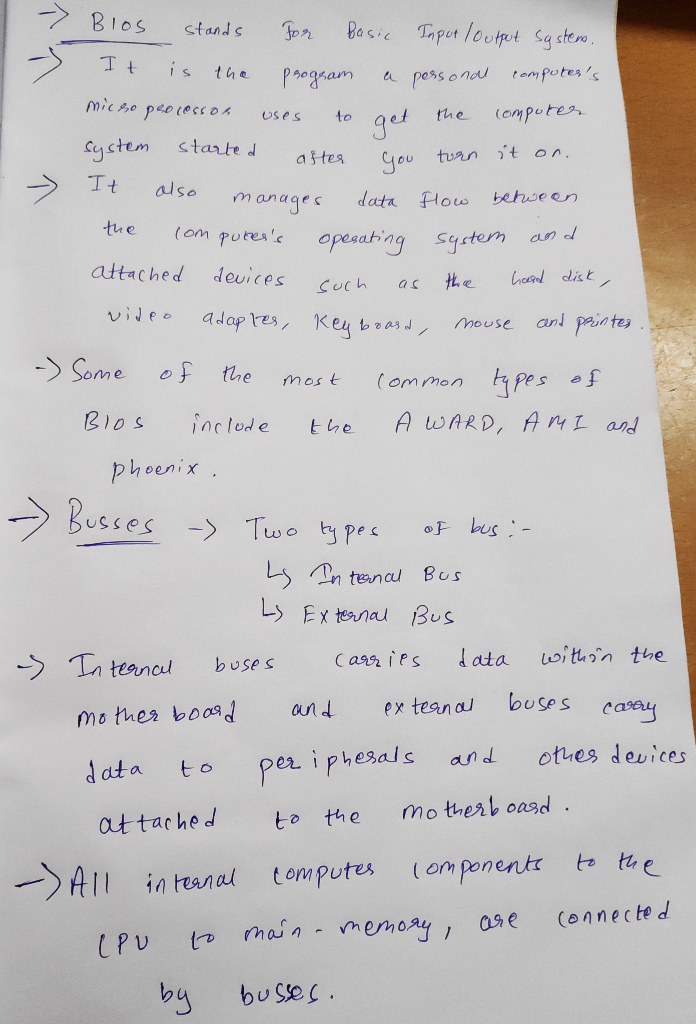 → BIOS stands for Basic Input/Output System.
→ It is the program a personal computer's
microprocessor uses to get the computer
system started after you turn it on.
→ It also manages data flow between
the computer's operating system and
attached devices such as the hard disk,
video adapter, keyboard, mouse and printer.
→ Some of the most common types of
BIOS include the AWARD, AMI and
phoenix.
→ Busses → Two types of bus :-
↳ Internal Bus
↳ External Bus
→ Internal buses carries data within the
motherboard and external buses carry
data to peripherals and other devices
attached to the motherboard.
→ All internal computer components to the
CPU to main-memory, are connected
by busses.